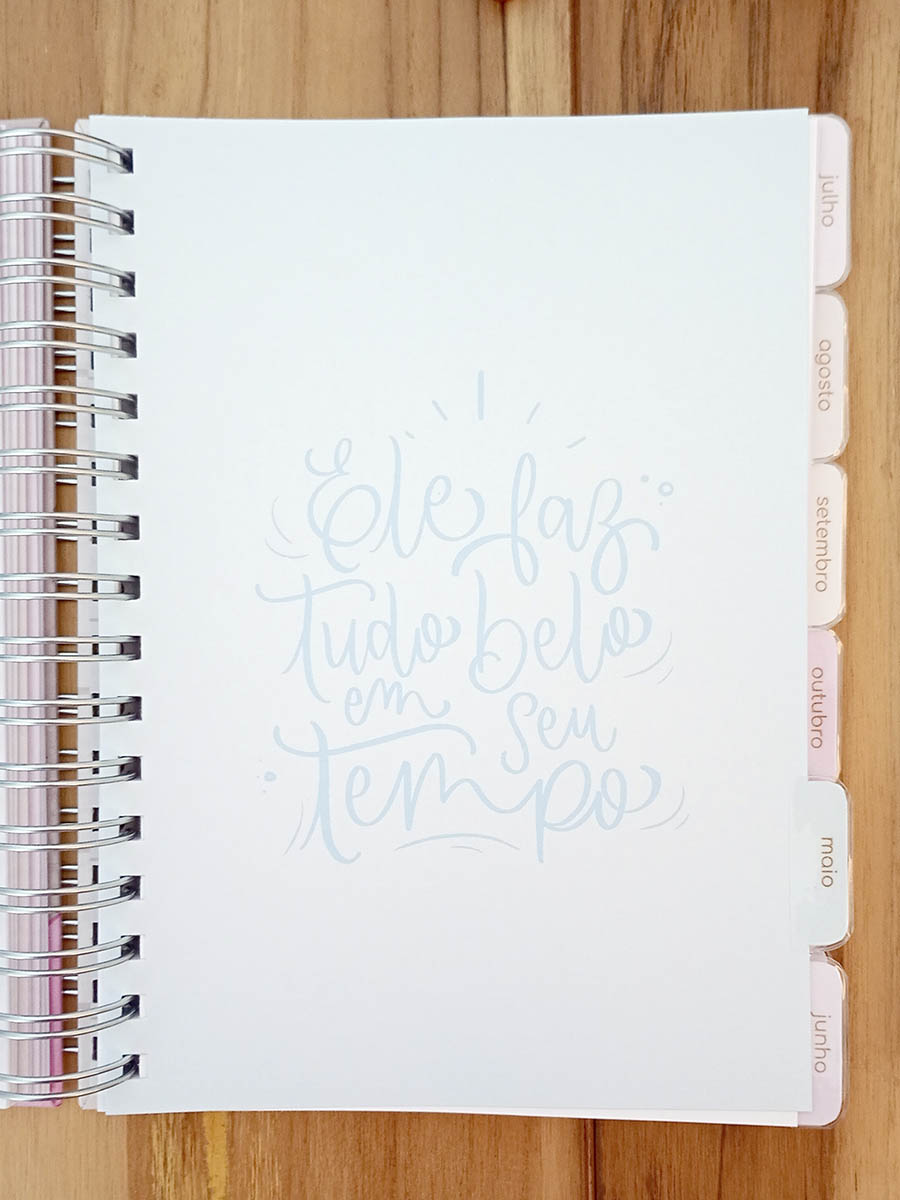 Ele faz
tudo belo
em seu
tempo
julho
agosto
setembro
outubro
maio
junho